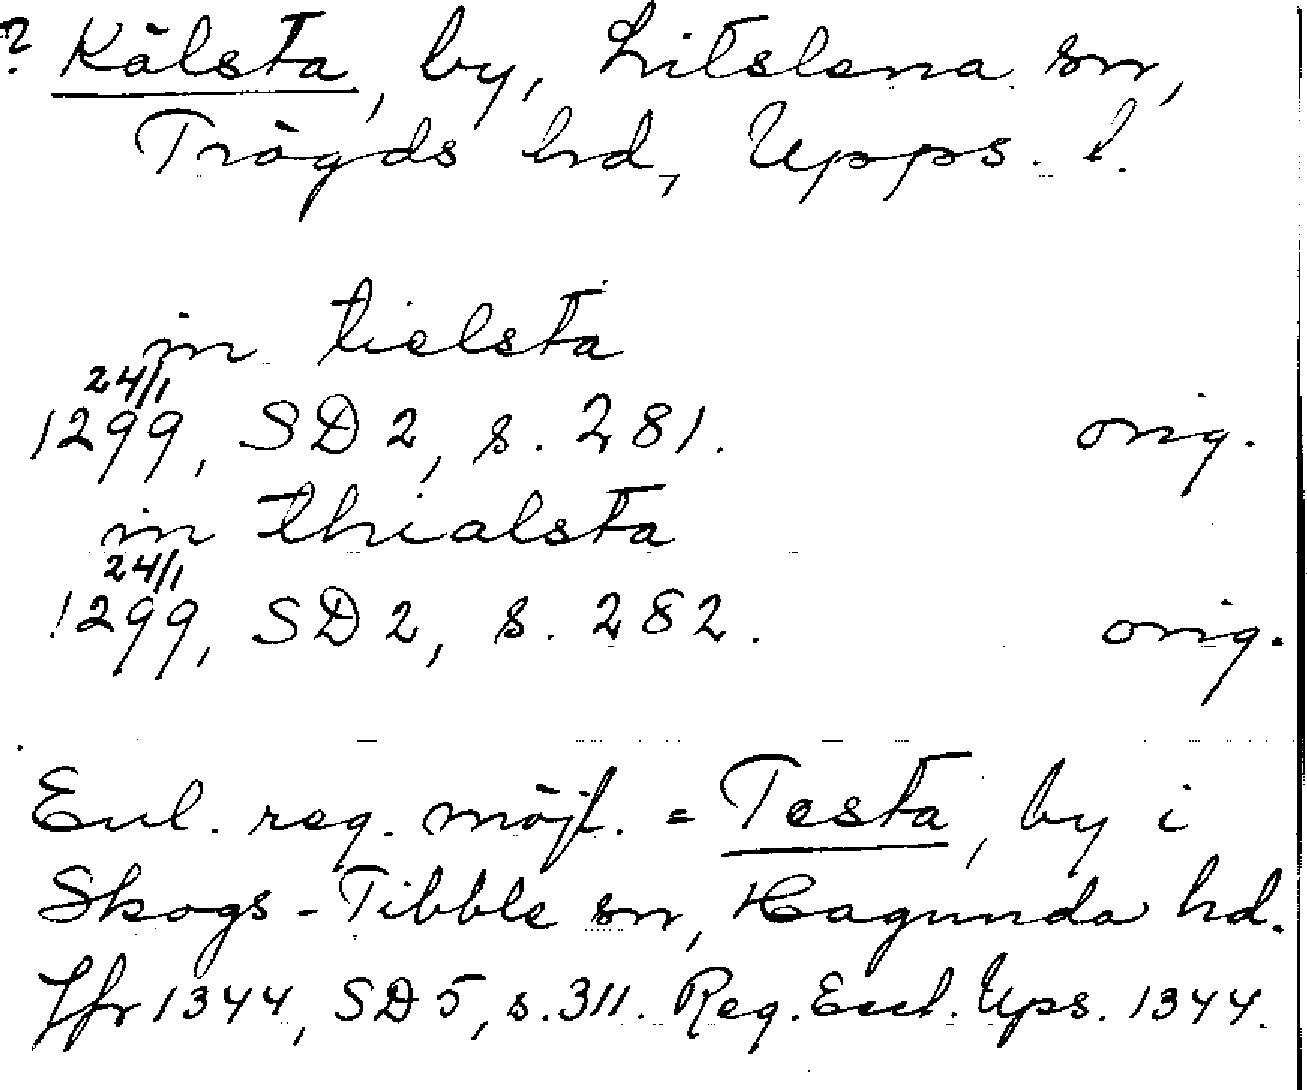 ? Kälsta, by, Litslena sn,
Trögds hd, Upps. l.
in tielsta
24/1
1299, SD 2, s. 281. orig.
in thialsta
24/1
1299, SD 2, s. 282. orig.
Enl. reg. möjl. = Testa, by i
Skogs-Tibble sn, Hagunda hd.
Jfr 1344, SD 5, s. 311. Reg. Eccl. Ups. 1344.